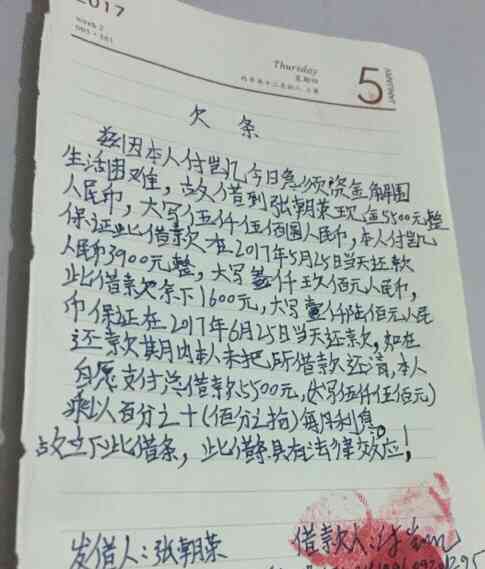 2017
Week 2
005 - 361
Thursday
星期四
5
JANUARY
欠条
兹因本人付岂凡今日急须资金解围
生活困难，故借到张朝荣现金5500元整
人民币，大写伍仟伍佰圆人民币，本人付岂凡
保证此借款在2017年5月25日当天还款
人民币3900元整，大写叁仟玖佰元人民币，
此借款欠余下1600元，大写壹仟陆佰元人民
币保证在2017年6月25日当天还款，如在
还款其月内本人未把所借款还清，本人
自愿支付总借款5500元，(大写伍仟伍佰元)
乘以百分之十(佰分之拾)每月利息
故立下此借条，此借条具有法律效应！
发借人：张朝荣
借款人：付